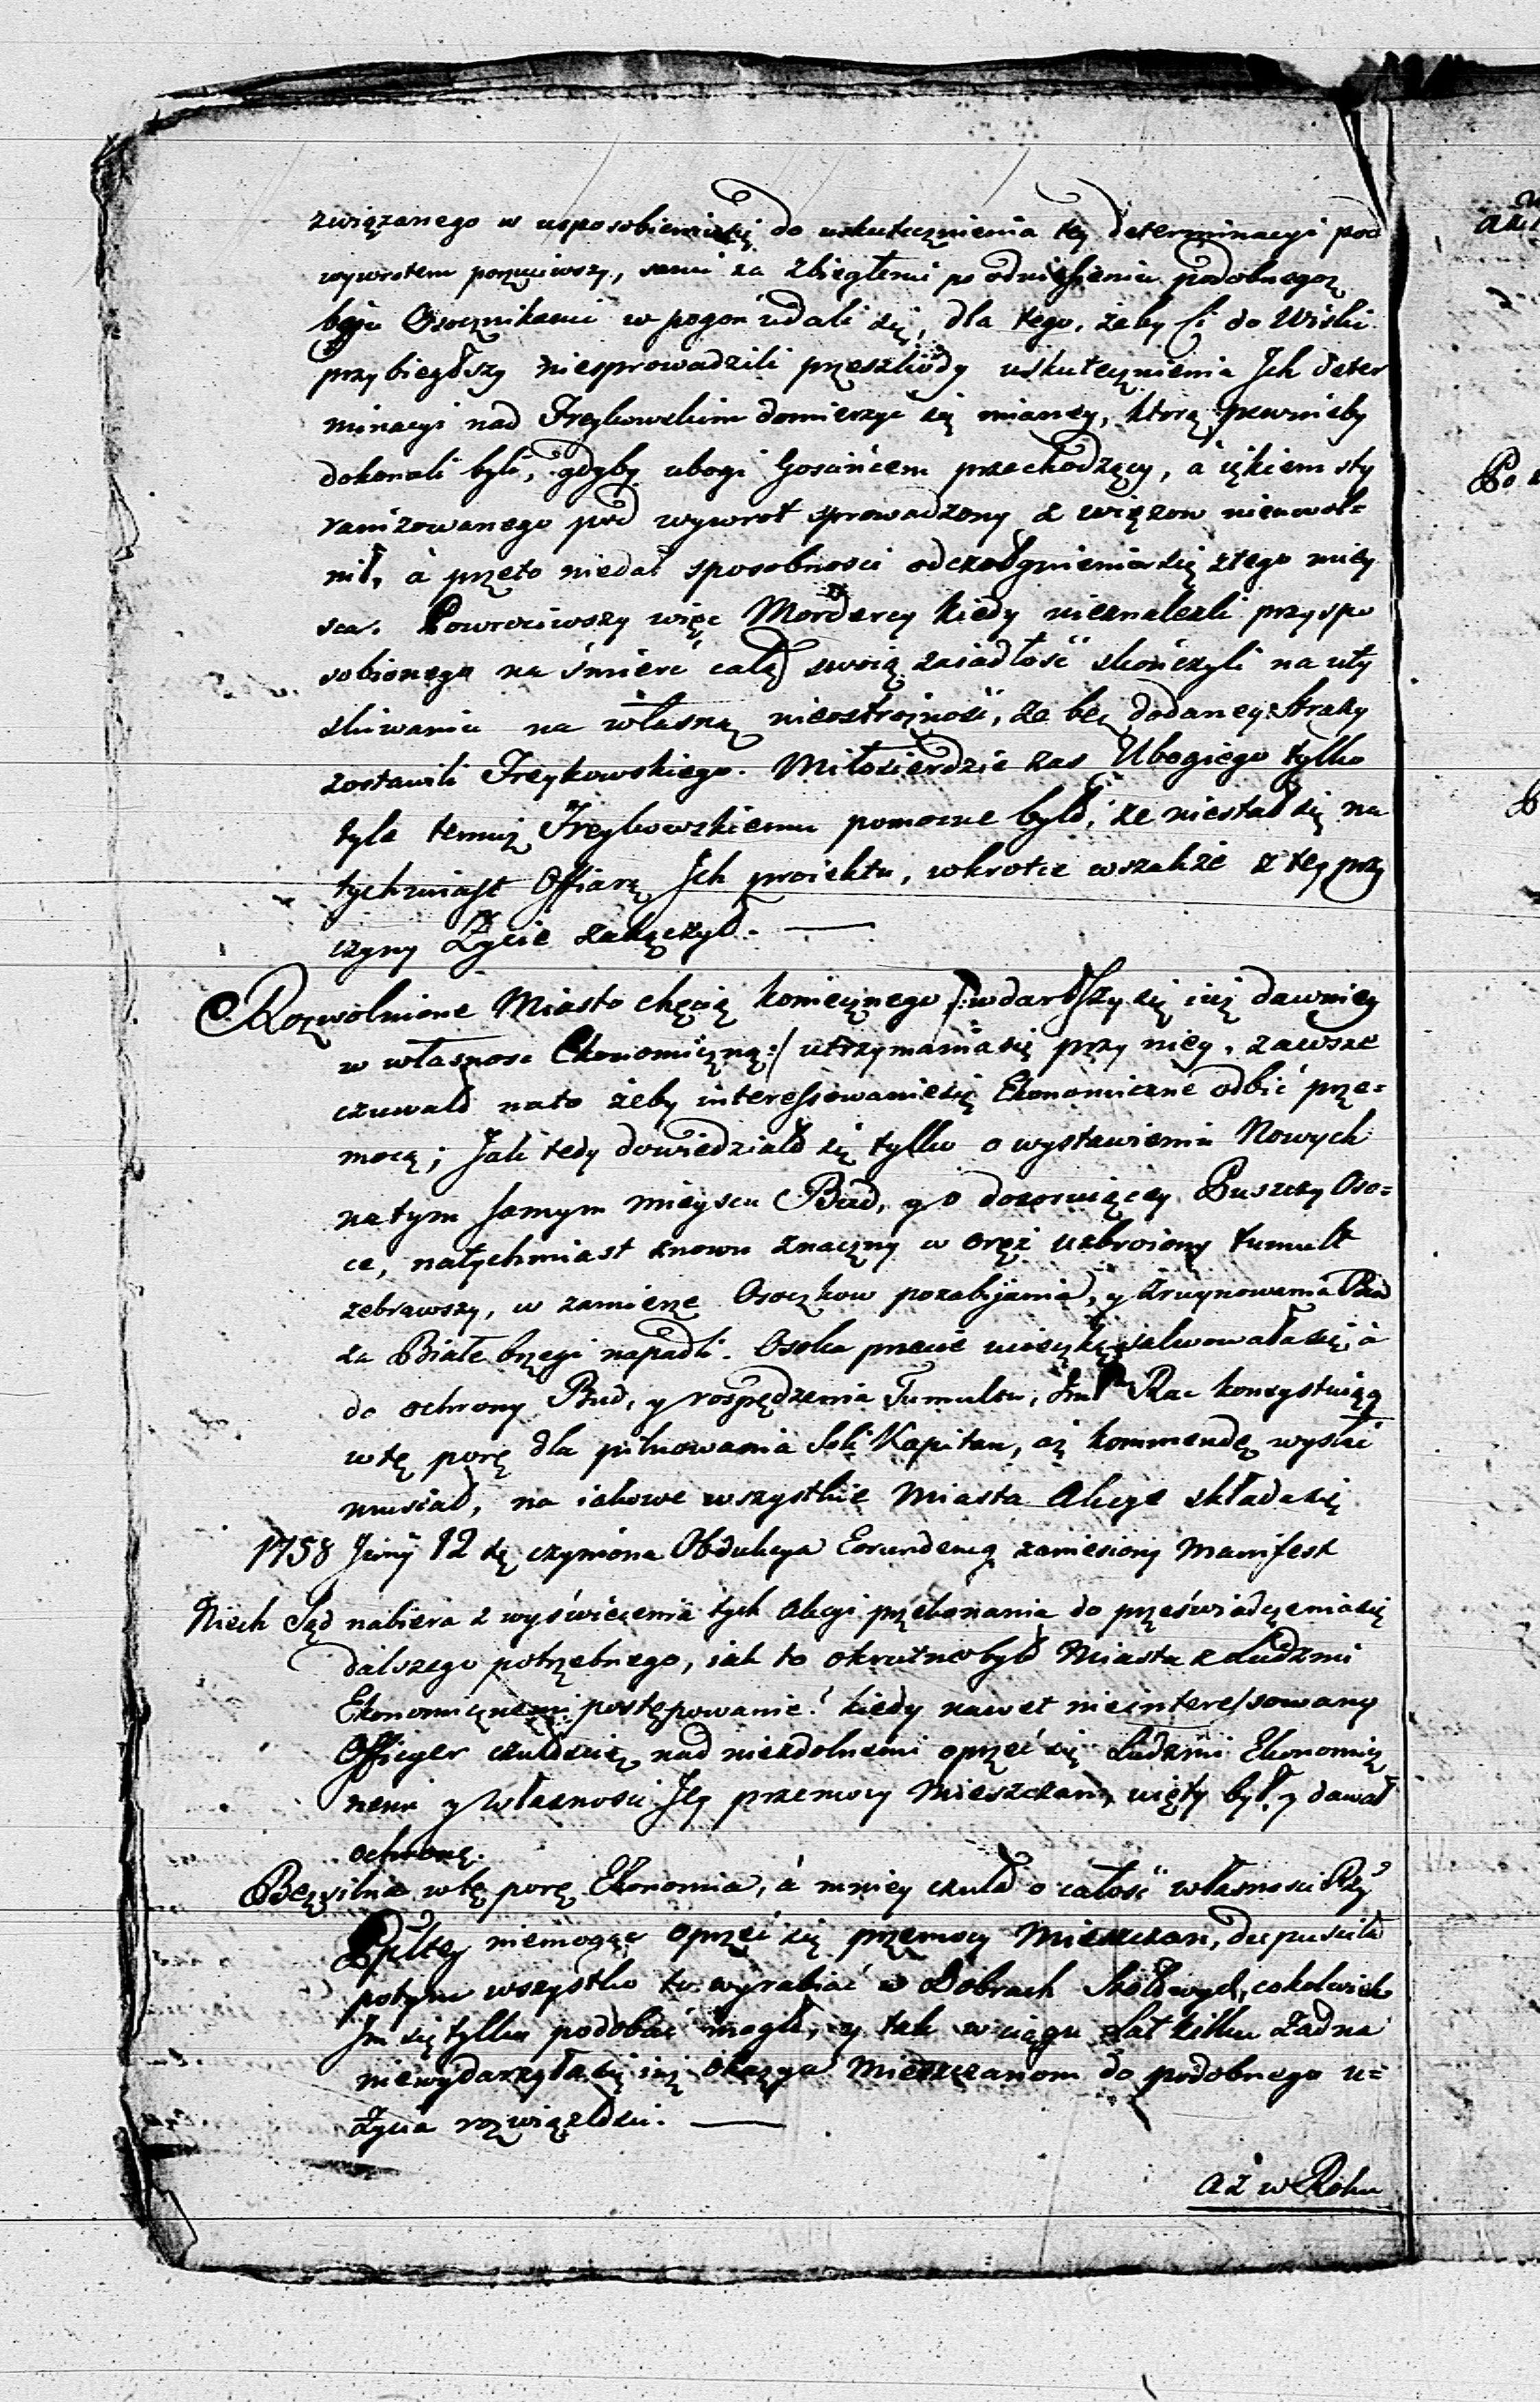 związanego w usposobieniu się do uskutecznienia tey determinacyi pod
wywrotem porzuciwszy, sami za zbiegłemi po odniesieniu podobnegoz
boju Osocznikami w pogoń udali się, dla tego, żeby Ci do Wioski
przybiegłszy niesprowadzili przeszkody uskutecznienia Jch deter
minacyi nad Freykowskim domierzyć się mianey, którą pewnieby
dokonali byli, gdyby ubogi Gościńcem przechodzący, a iękiem sty
ranizowanego pod wywrot sprowadzony z więzow nieuwol=
nił, à przeto niedał sposobności odczołgnienia się z tego miey
sca. Powrociwszy więc Mordercy kiedy nieznalezli przyspo
sobionego na śmierć całą swoią zaiadłość skończyli na uty
skiwaniu na własną nieostrożność, że bez dodaney Straży
zostawili Freykowskiego. Miłosierdzie zas Ubogiego tylko
tyle temuż Freykowskiemu pomocne było, że niestał się na
tychmiast Offiarą Jch proiektu, wkrotce wszakże z tey przy
czyny Życie zakączył. —
Rozwolnione Miasto chęcią koniecznego /: wdarłszy się iuż dawniey
w własnosc Ekonomiczną :/ utrzymania się przy niey, zawsze
czuwało nato żeby interessowanie się Ekonomiczne odbić prze=
mocą; Jak tedy dowiedziało się tylko o wystawieniu Nowych
na tym samym mieyscu Bud, y o dozoruiącey Puszczy Oso=
ce, natychmiast znowu znaczny w oręż uzbroiony tumult
zebrawszy, w zamierze Osoczkow pozabijania, y zruynowania Bud
za Białe brzegi napadli. Osoka przecie ucieczką salwowała się, à
do ochrony Bud, y rospędzenia Tumultu, Jmć Pan Rac konsystuiący
w tę porę dla pilnowania Soli Kapitan, aż kommendę wysłać
musiał, na iakowe wszystkie Miasta Akcye składa się
1758 Junij 12 dę czyniona Obdukcya Eorundemą zaniesiony Manifest
Niech Sąd nabiera z wyświecenia tych Akcyi przekonania do przeświadczenia się
dalszego potrzebnego, iak to okrutne było Miasta z Ludzmi
Ekonomicznemi postępowanie! kiedy nawet nieinteressowany
Officyer czułością nad niezdolnemi oprzeć się Ludzmi Ekonomicz
nemi y Własności Jey przemocy Mieszczan, uięty był, y dawał
ochronę.
Bezsilna w tę porę Ekonomia, à mniey czuła o całość własności Rzy
Pultey niemogąc oprzeć się przemocy Mieszczan, dopuściła
potym wszystko to wyrabiać w Dobrach Stołowych, cokolwiek
Jm się tylko podobać mogło, y tak w ciągu Lat kilku Żadna
niewydarzyła się iuż okazya Mieszczanom do podobnego u=
życia rozwiązłości. —
aż w Roku